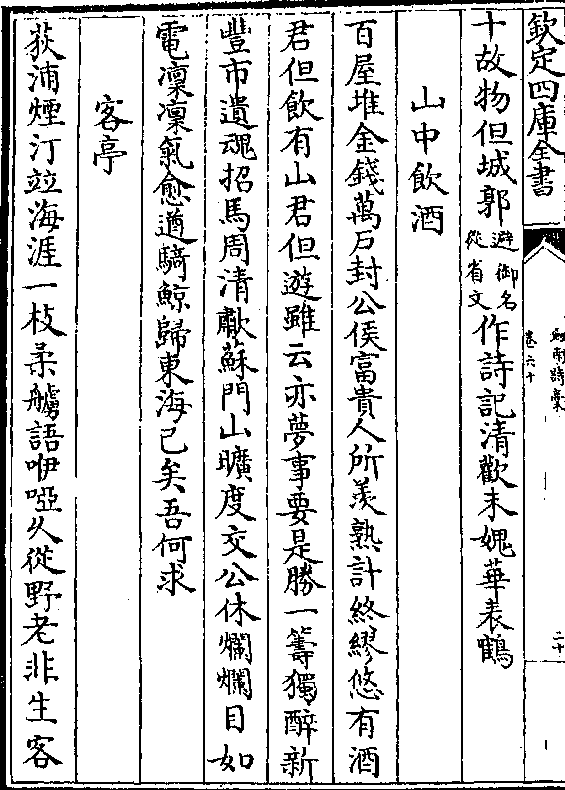 欽定四庫全書
劍南詩稾
卷六十
二十
十故物但城郭避御名從省文作詩記清歡未媿華表鶴
山中飲酒
百屋堆金錢萬戸封公侯富貴人所羨熟計終繆悠有酒
君但飲有山君但遊雖云亦夢事要是勝一籌獨醉新
豐市遺魂招馬周清歗蘇門山曠度交公休爛爛目如
電凜凜氣愈遒騎鯨歸東海已矣吾何求
客亭
荻浦煙汀竝海涯一枝柔艣語咿啞乆從野老非生客